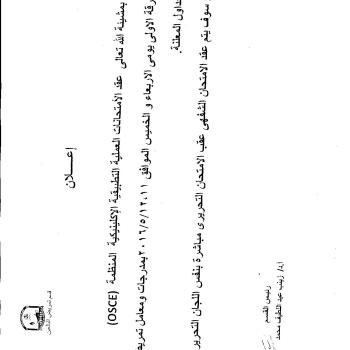 إعـــلان
بمشيئة الله تعالى عقد الأمتحانات العملية التطبيقية الإكلينيكية المنظمة (OSCE)
رقة الاولى يومى الاربعاء و الخميس الموافق ٢٠١٦/٥/١٢،١١ بمدرجات ومعامل تمريض
داول المعلنة.
سوف يتم عقد الامتحان الشفهى عقب الامتحان التحريرى مباشرة بنفس اللجان التحرير
رئيس القسم
ا.د/ زينب عبد اللطيف محمد